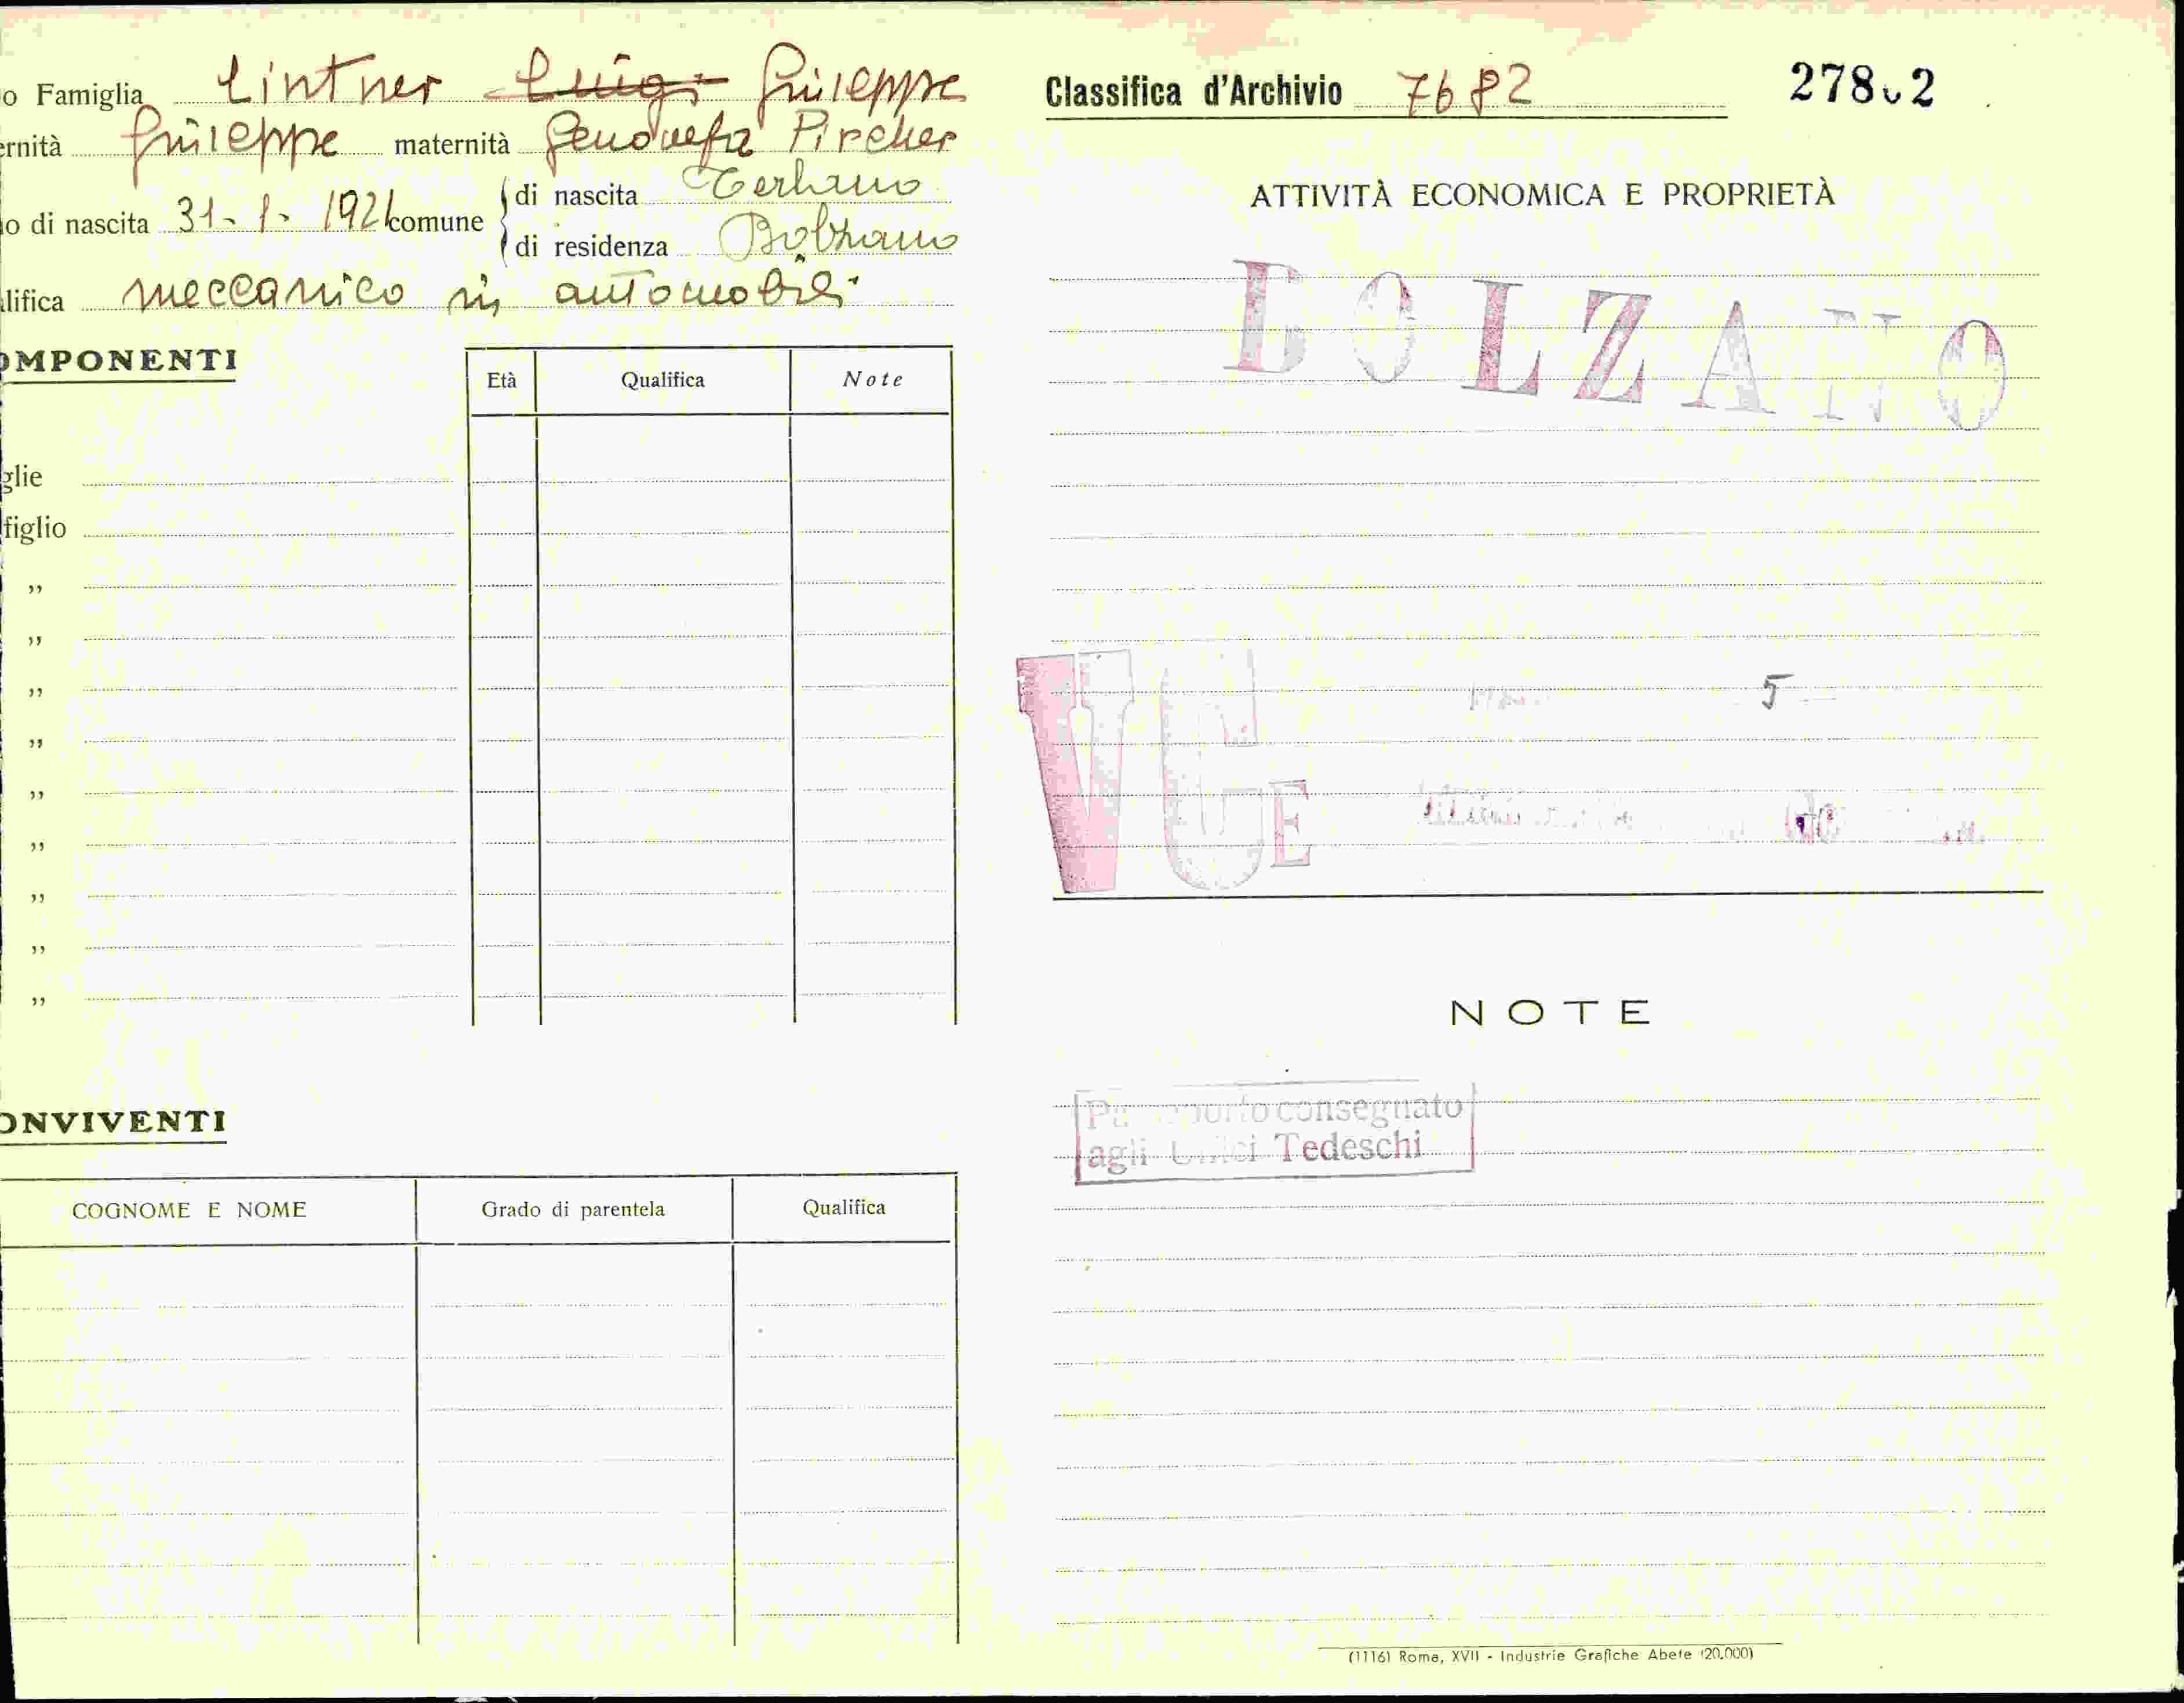 o Famiglia Lintner Luigi Giuseppe
ernità Giuseppe maternità Genovefa Pircher
o di nascita 31-1-1921 comune di nascita Terlano
di residenza Bolzano
lifica meccanico in automobili
OMPONENTI
Età Qualifica Note
glie
figlio
„
„
„
„
„
„
„
„
„
ONVIVENTI
COGNOME E NOME Grado di parentela Qualifica
Classifica d'Archivio 7682 278 2
ATTIVITÀ ECONOMICA E PROPRIETÀ
BOLZANO
5
VG
E
NOTE
consegnato
agli Tedeschi
(1116) Roma, XVII - Industrie Grafiche Abete (20.000)